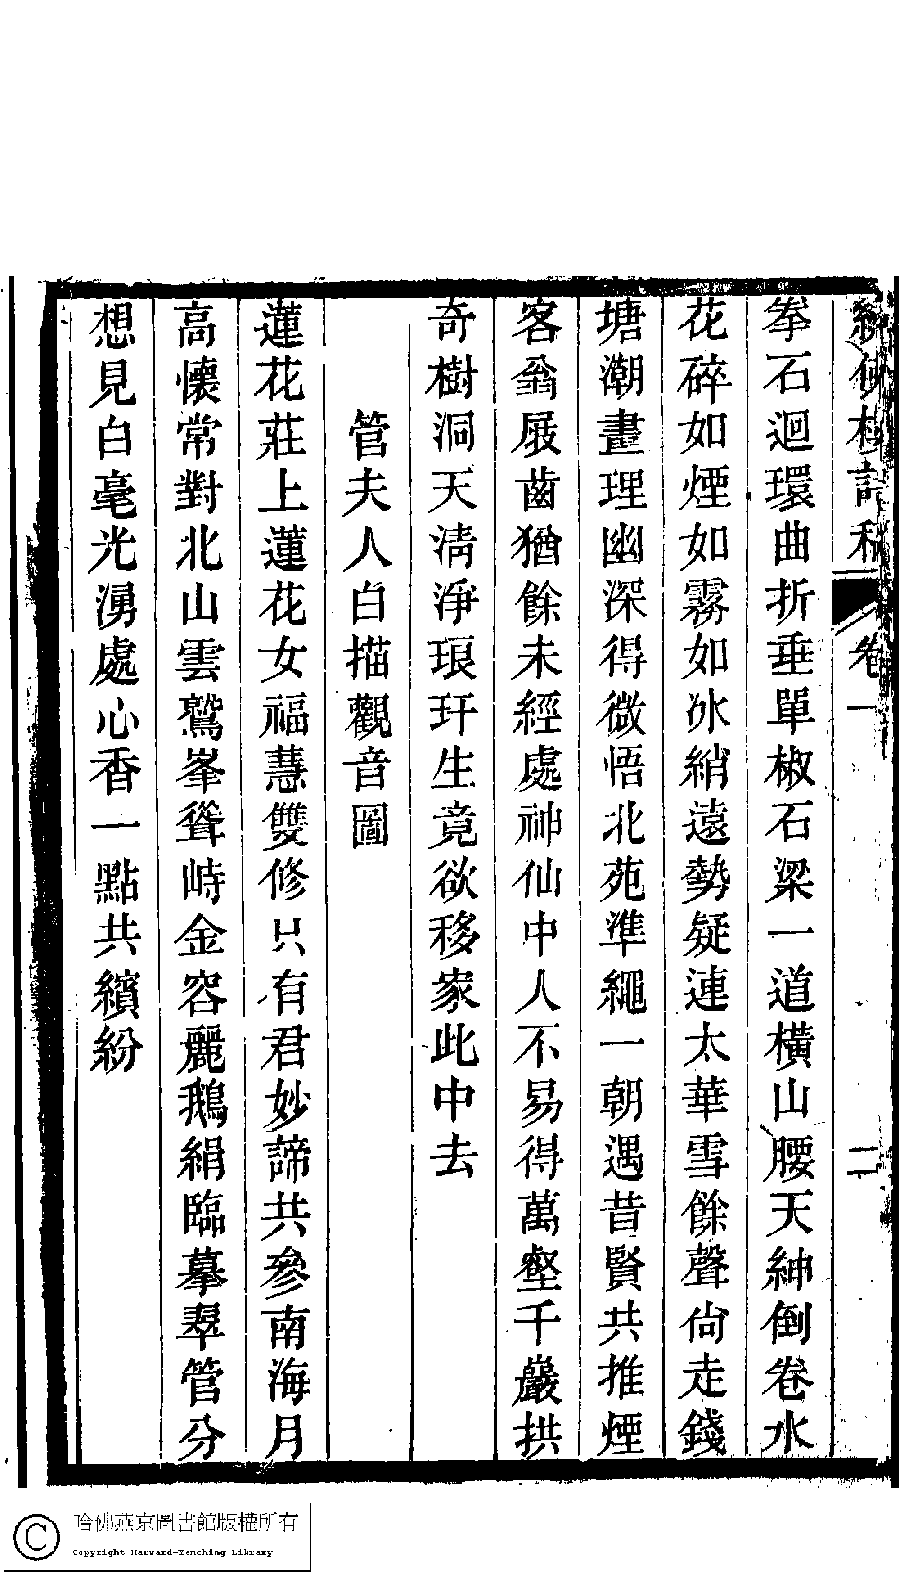 詩稿 卷一 二
拳石迴環曲折垂單椒石梁一道橫山腰天紳倒卷水
花碎如煙如霧如冰綃遠勢疑連太華雪餘聲尙走錢
塘潮畫理幽深得微悟北苑準繩一朝遇昔賢共推煙
客翁屐齒猶餘未經處神仙中人不易得萬壑千巖拱
奇樹洞天淸淨琅玕生竟欲移家此中去
管夫人白描觀音圖
蓮花莊上蓮花女福慧雙修只有君妙諦共參南海月
高懷常對北山雲鷲峯聳峙金容麗鵝絹臨摹翠管分
想見白毫光湧處心香一點共繽紛
哈佛燕京圖書館版權所有
Copyright Harvard-Yenching Library